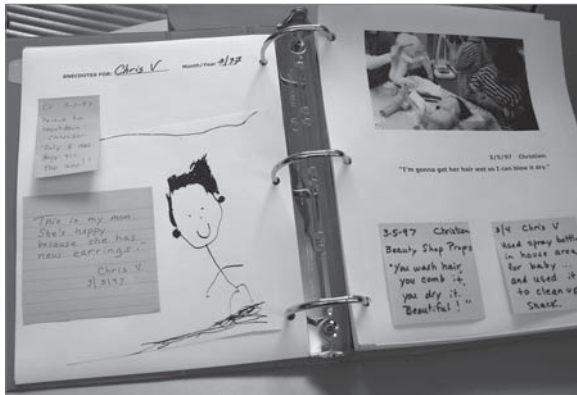 ANECDOTES FOR: Chris V Month/Year 3/97
CV 3-3-97
countdown
calendar
"Only 8 more
days til
the zoo!!
"This is my mom.
She's happy
because she has
new earrings."
Chris V
3/3/97
3/5/97 Christian:
"I'm gonna get her hair wet so I can blow it dry."
3-5-97 Christian
Beauty Shop Props
"You wash hair,
you comb it,
you dry it.
Beautiful!"
3/4 Chris V
Used spray bottle
in house area
for baby ...
and used it
to clean up
snack.